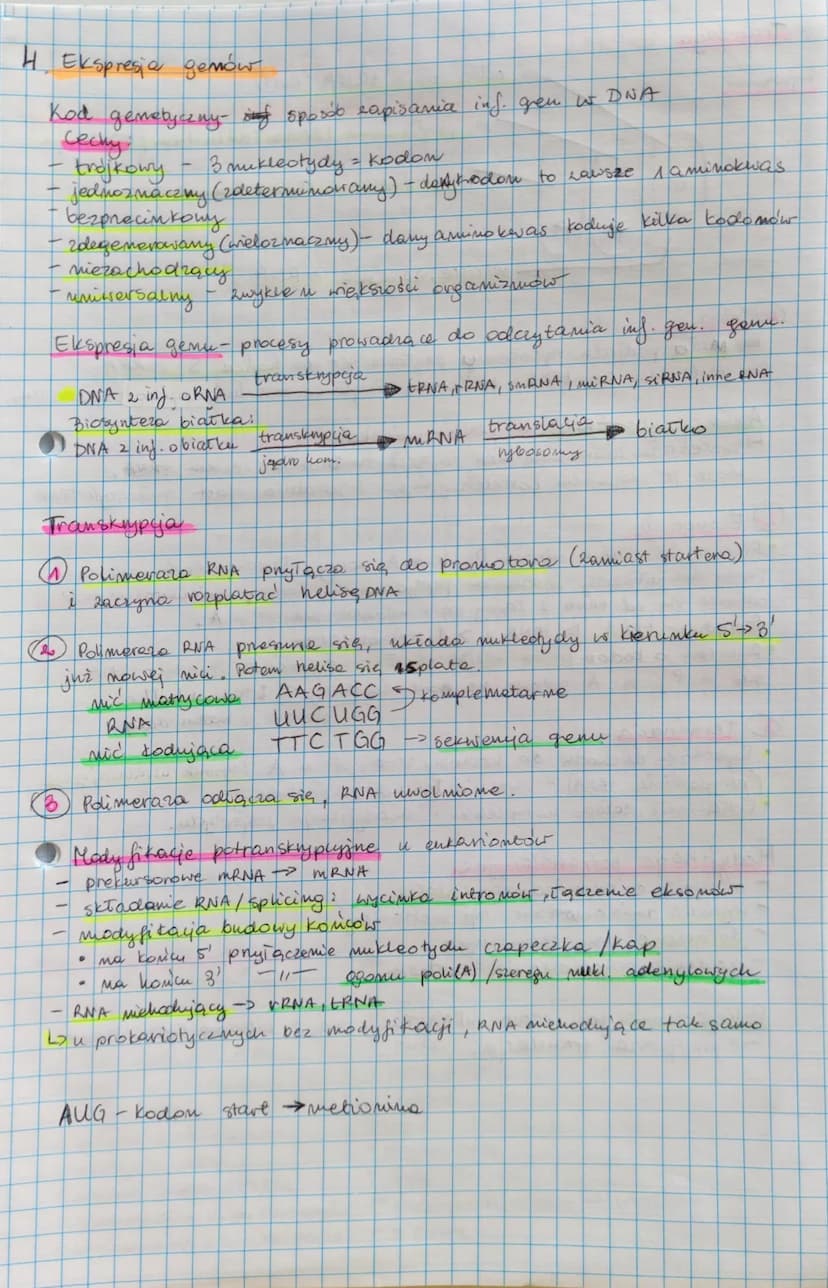 4. Ekspresja genów
Kod genetyczny - sposób zapisania inf. gen w DNA
Cechy:
- trójkowy - 3 nukleotydy = kodon
- jednoznaczny (zdeterminowany) - dany kodon to zawsze 1 aminokwas
- bezprzecinkowy
- zdegenerowany (wieloznaczny) - dany aminokwas koduje kilka kodonów
- niezachodzący
- uniwersalny - zwykle u większości organizmów
Ekspresja genu - procesy prowadzące do odczytania inf. gen. genu.
DNA z inf. o RNA transkrypcja → tRNA, rRNA, snRNA, miRNA, siRNA, inne RNA
Biosynteza białka:
DNA z inf. o białku transkrypcja → mRNA translacja → białko
jądro kom. rybosomy
Transkrypcja
1 Polimeraza RNA przyłącza się do promotora (zamiast startera)
i zaczyna rozplatać helisę DNA
2 Polimeraza RNA przesuwa się, układa nukleotydy w kierunku 5'→3'
już nowej nici. Potem helisa się splata.
nić matrycowa AAGACC komplemetarne
RNA UUCUGG
nić kodująca TTCTGG → sekwencja genu
3 Polimeraza odłącza się, RNA uwolnione.
Modyfikacje potranskrypcyjne u eukariontów
- prekursorowe mRNA → mRNA
- składanie RNA/splicing: wycinka intronów, łączenie eksonów
- modyfikacja budowy końców
• na końcu 5' przyłączenie nukleotydu czapeczka/kap
• na końcu 3' -||- ogonu poli(A)/szeregu nukl. adenylowych
- RNA niekodujący → rRNA, tRNA
↳ u prokariotycznych bez modyfikacji, RNA niekodujące tak samo
AUG - kodon start → metionina